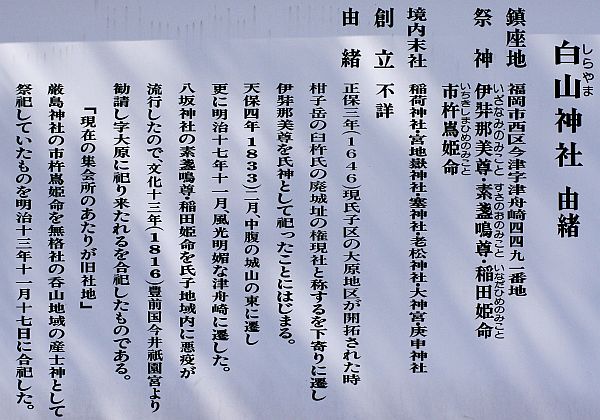 白山神社 由緒
しらやま
鎮座地 福岡市西区今津字津舟崎四四九一番地
祭神 伊弉那美尊・素盞鳴尊・稲田姫命
いざなみのみこと すさのおのみこと いなだひめのみこと
市杵嶌姫命
いちきしまひめのみこと
境内末社 稲荷神社・宮地嶽神社・塞神社・老松神社・大神宮庚申神社
創立 不詳
由緒 正保三年(1646)現氏子区の大原地区が開拓された時
柑子岳の臼杵氏の廃城址の権現社と称するを下寄りに遷し
伊弉那美尊を氏神として祀ったことにはじまる。
天保四年(1833)二月、中腹の城山の東に遷し
更に明治十七年十一月、風光明媚な津舟崎に遷した。
八坂神社の素盞鳴尊・稲田姫命を氏子地域内に悪疫が
流行したので、文化十三年(1816)豊前国今井祇園宮より
勧請し字大原に祀り来たれるを合祀したものである。
「現在の集会所のあたりが旧社地」
厳島神社の市杵嶌姫命を無格社の呑山地域の産士神として
祭祀していたものを明治十三年十一月十七日に合祀した。